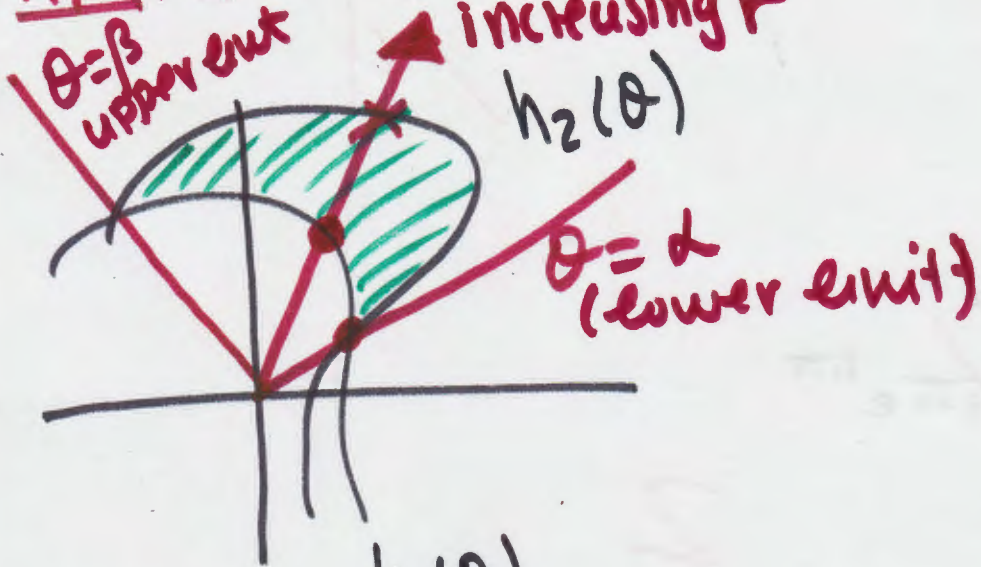 θ=β
upper limit
increasing r
h₂(θ)
θ = α
(lower limit)